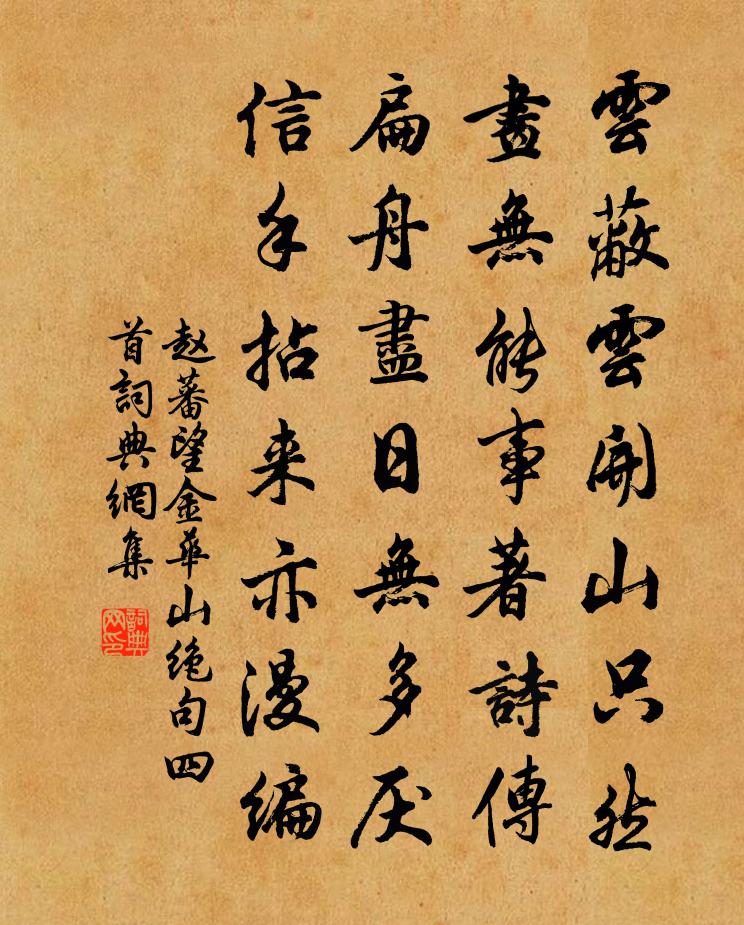 雲蔽雲開山只然
畫無能事著詩傳
扁舟盡日無多厌
信手拈来亦漫编
赵蕃望金華山绝句四
首詞典網集
詞典网印